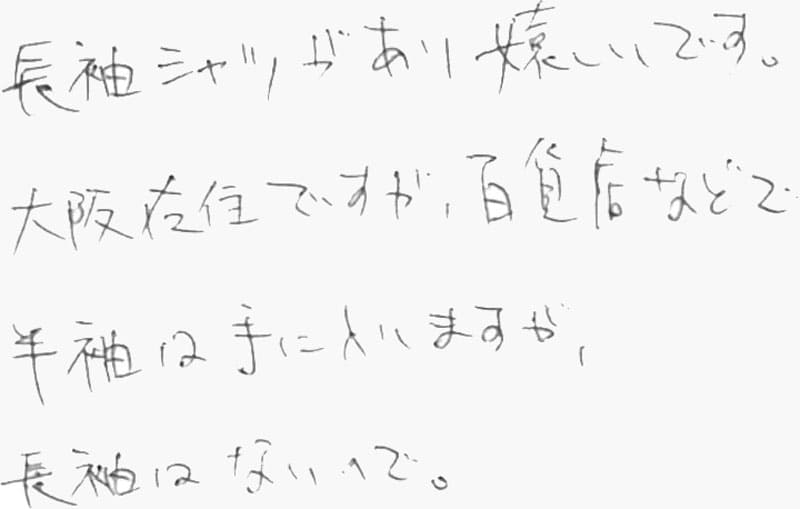 長袖シャツがあり嬉しいです。
大阪在住ですが、百貨店などで
半袖は手に入りますが、
長袖はないので。